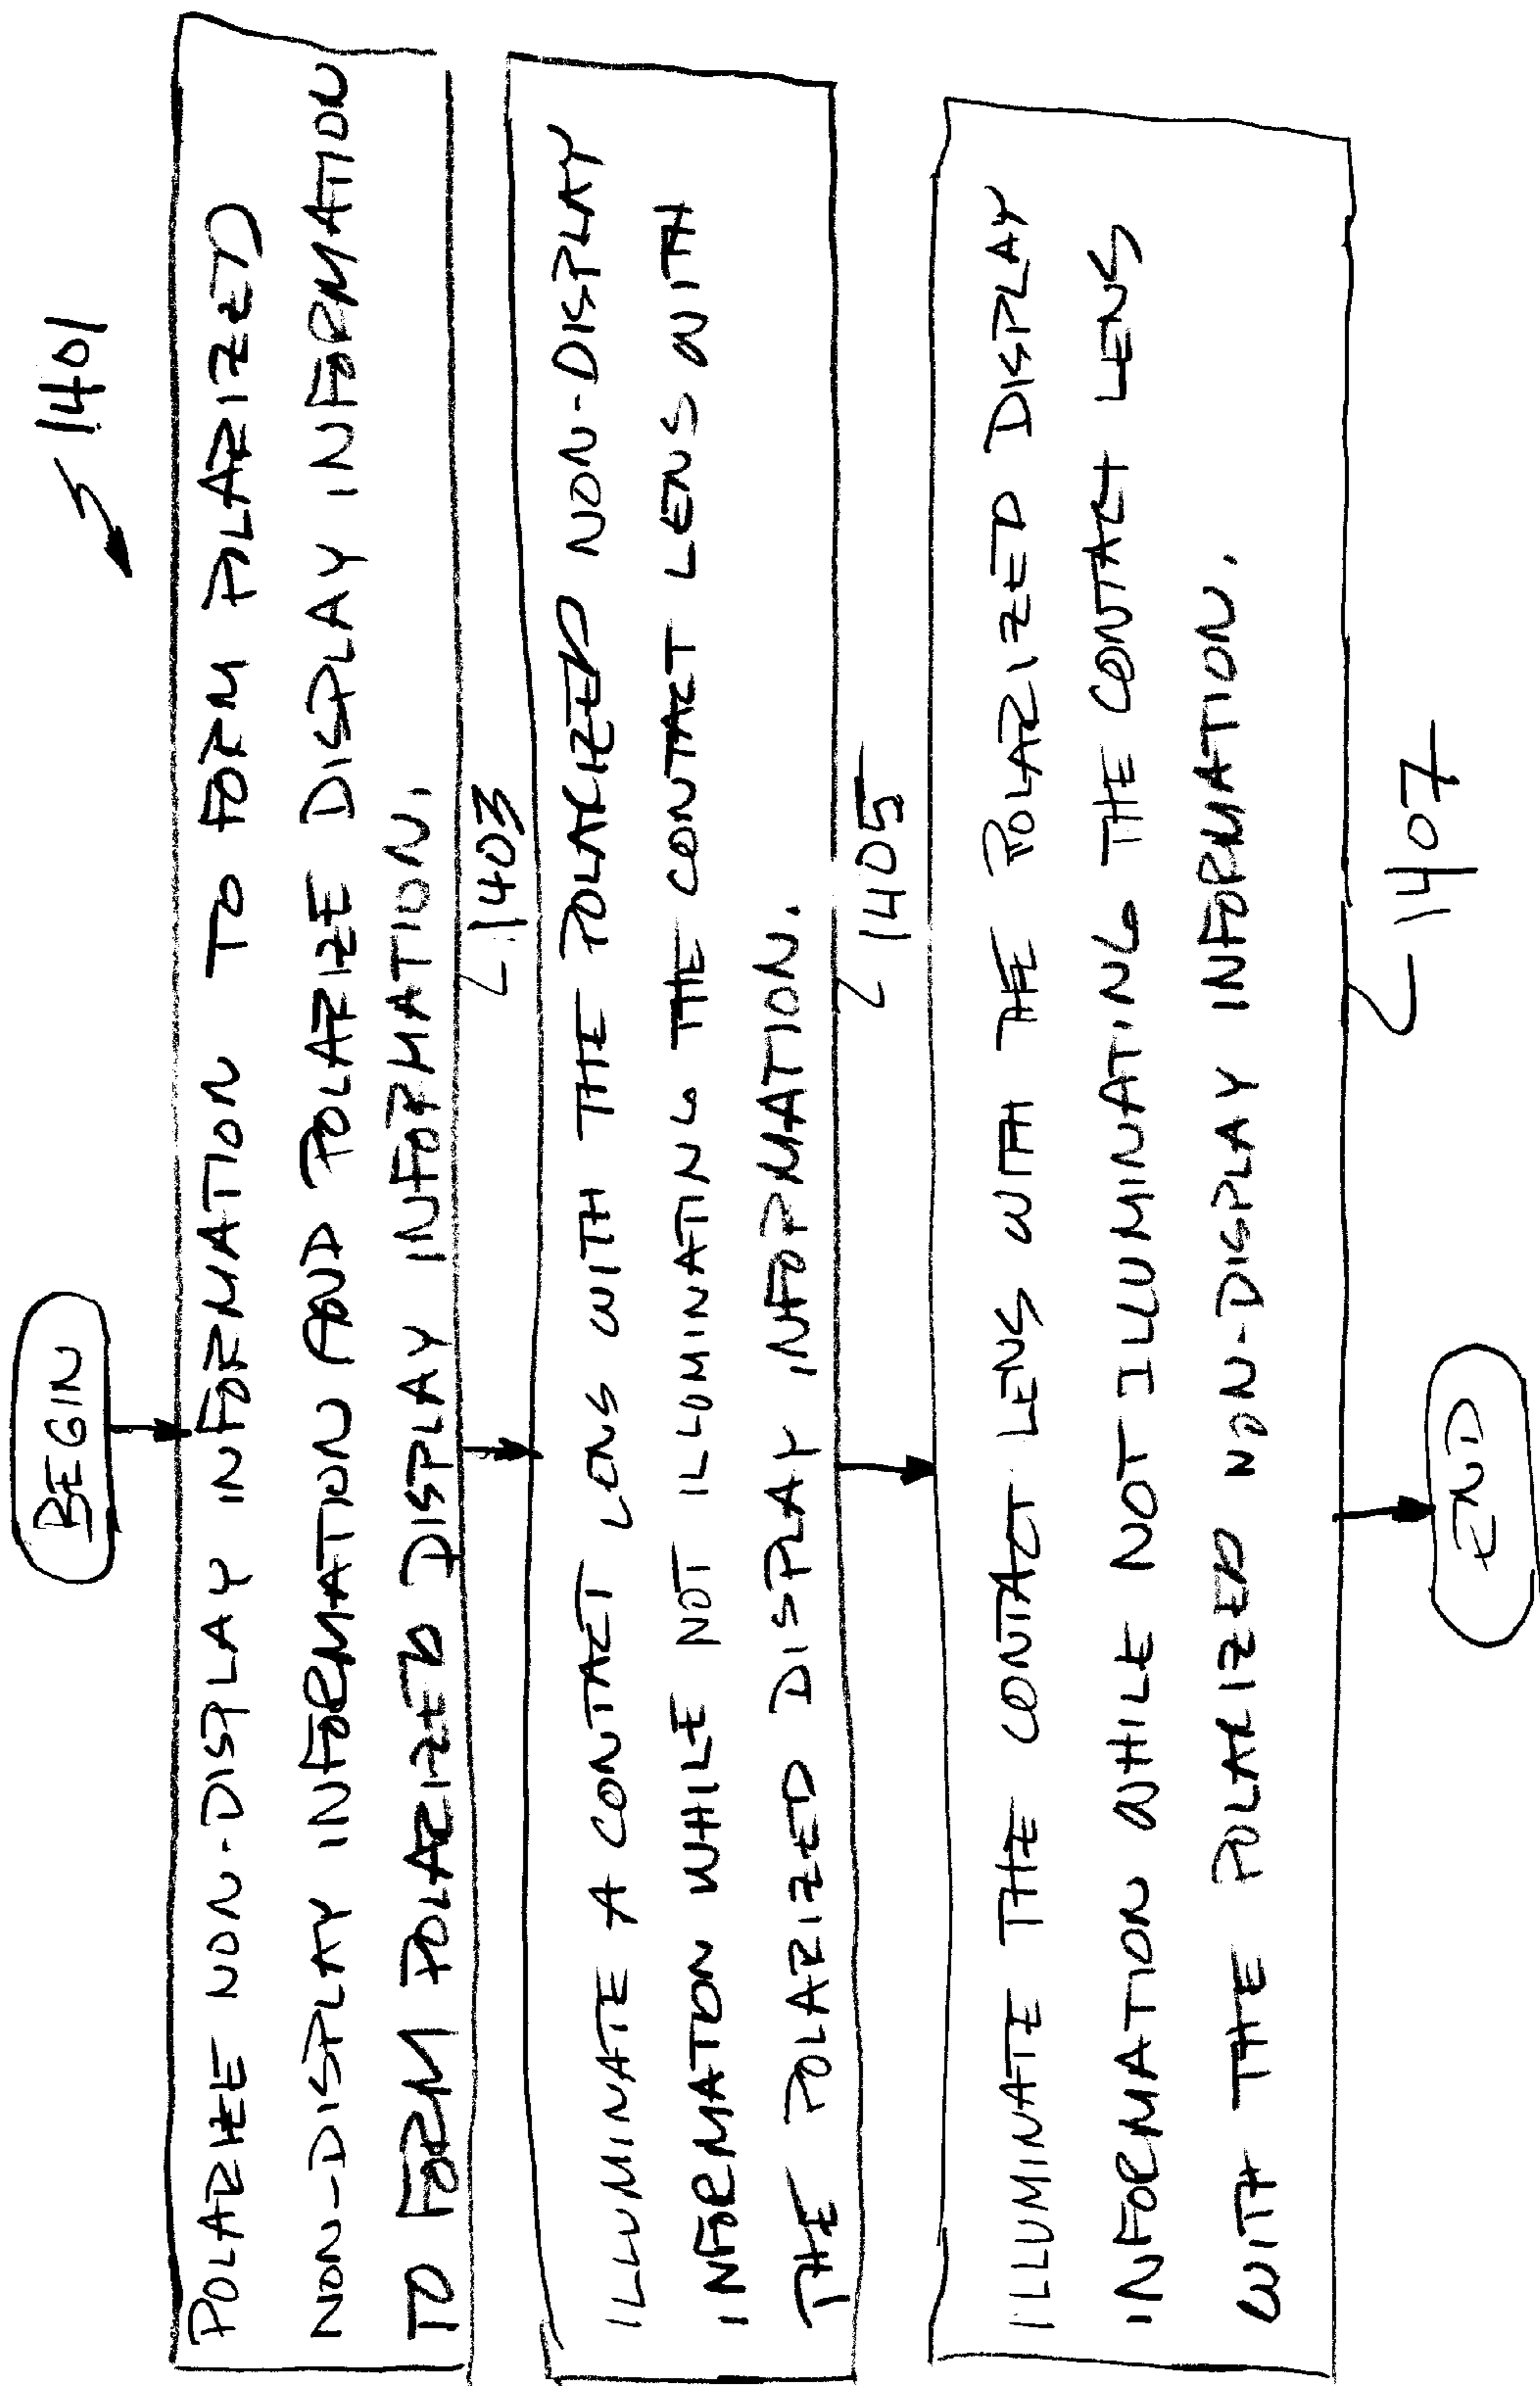 1401
BEGIN
POLARIZE NON-DISPLAY INFORMATION TO FORM POLARIZED
NON-DISPLAY INFORMATION AND POLARIZE DISPLAY INFORMATION
TO FORM POLARIZED DISPLAY INFORMATION.
1403
ILLUMINATE A CONTACT LENS WITH THE POLARIZED NON-DISPLAY
INFORMATON WHILE NOT ILLUMINATING THE CONTACT LENS WITH
THE POLARIZED DISPLAY INFORMATION.
1405
ILLUMINATE THE CONTACT LENS WITH THE POLARIZED DISPLAY
INFORMATION WHILE NOT ILLUMINATING THE CONTACT LENS
WITH THE POLARIZED NON-DISPLAY INFORMATION.
1407
END